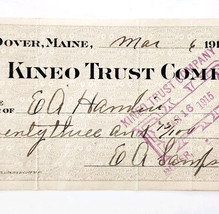 DOVER, MAINE, Mar 6 191
KINEO TRUST COMP
OF E A Hamlin
enty three and 72/100
E A Simps
KINEO TRUST COMPANY
16 1915